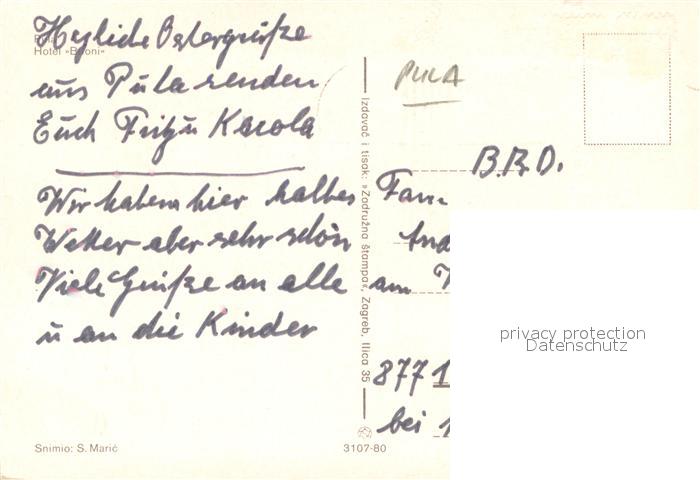 Herzliche Ostergrüße
Hotel »Brioni«
aus Pula senden
Euch Fritz u Karola
Wir haben hier kaltes
Wetter aber sehr schön
Viele Grüße an alle
u an die Kinder
Snimio: S. Marić
3107-80
Izdavač i tisak: »Zadružna štampa«, Zagreb, Ilica 35
PULA
B.R.D.
Fam
am
8771
bei
privacy protection
Datenschutz